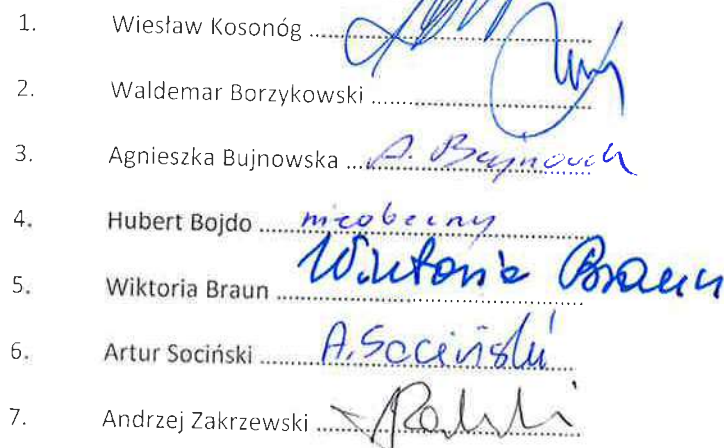 1. Wiesław Kosonóg ........................
2. Waldemar Borzykowski ........................
3. Agnieszka Bujnowska ........................ A.
4. Hubert Bojdo ........................ nieobecny
5. Wiktoria Braun ........................ Wiktoria Braun
6. Artur Sociński ........................ A. Sociński
7. Andrzej Zakrzewski ........................